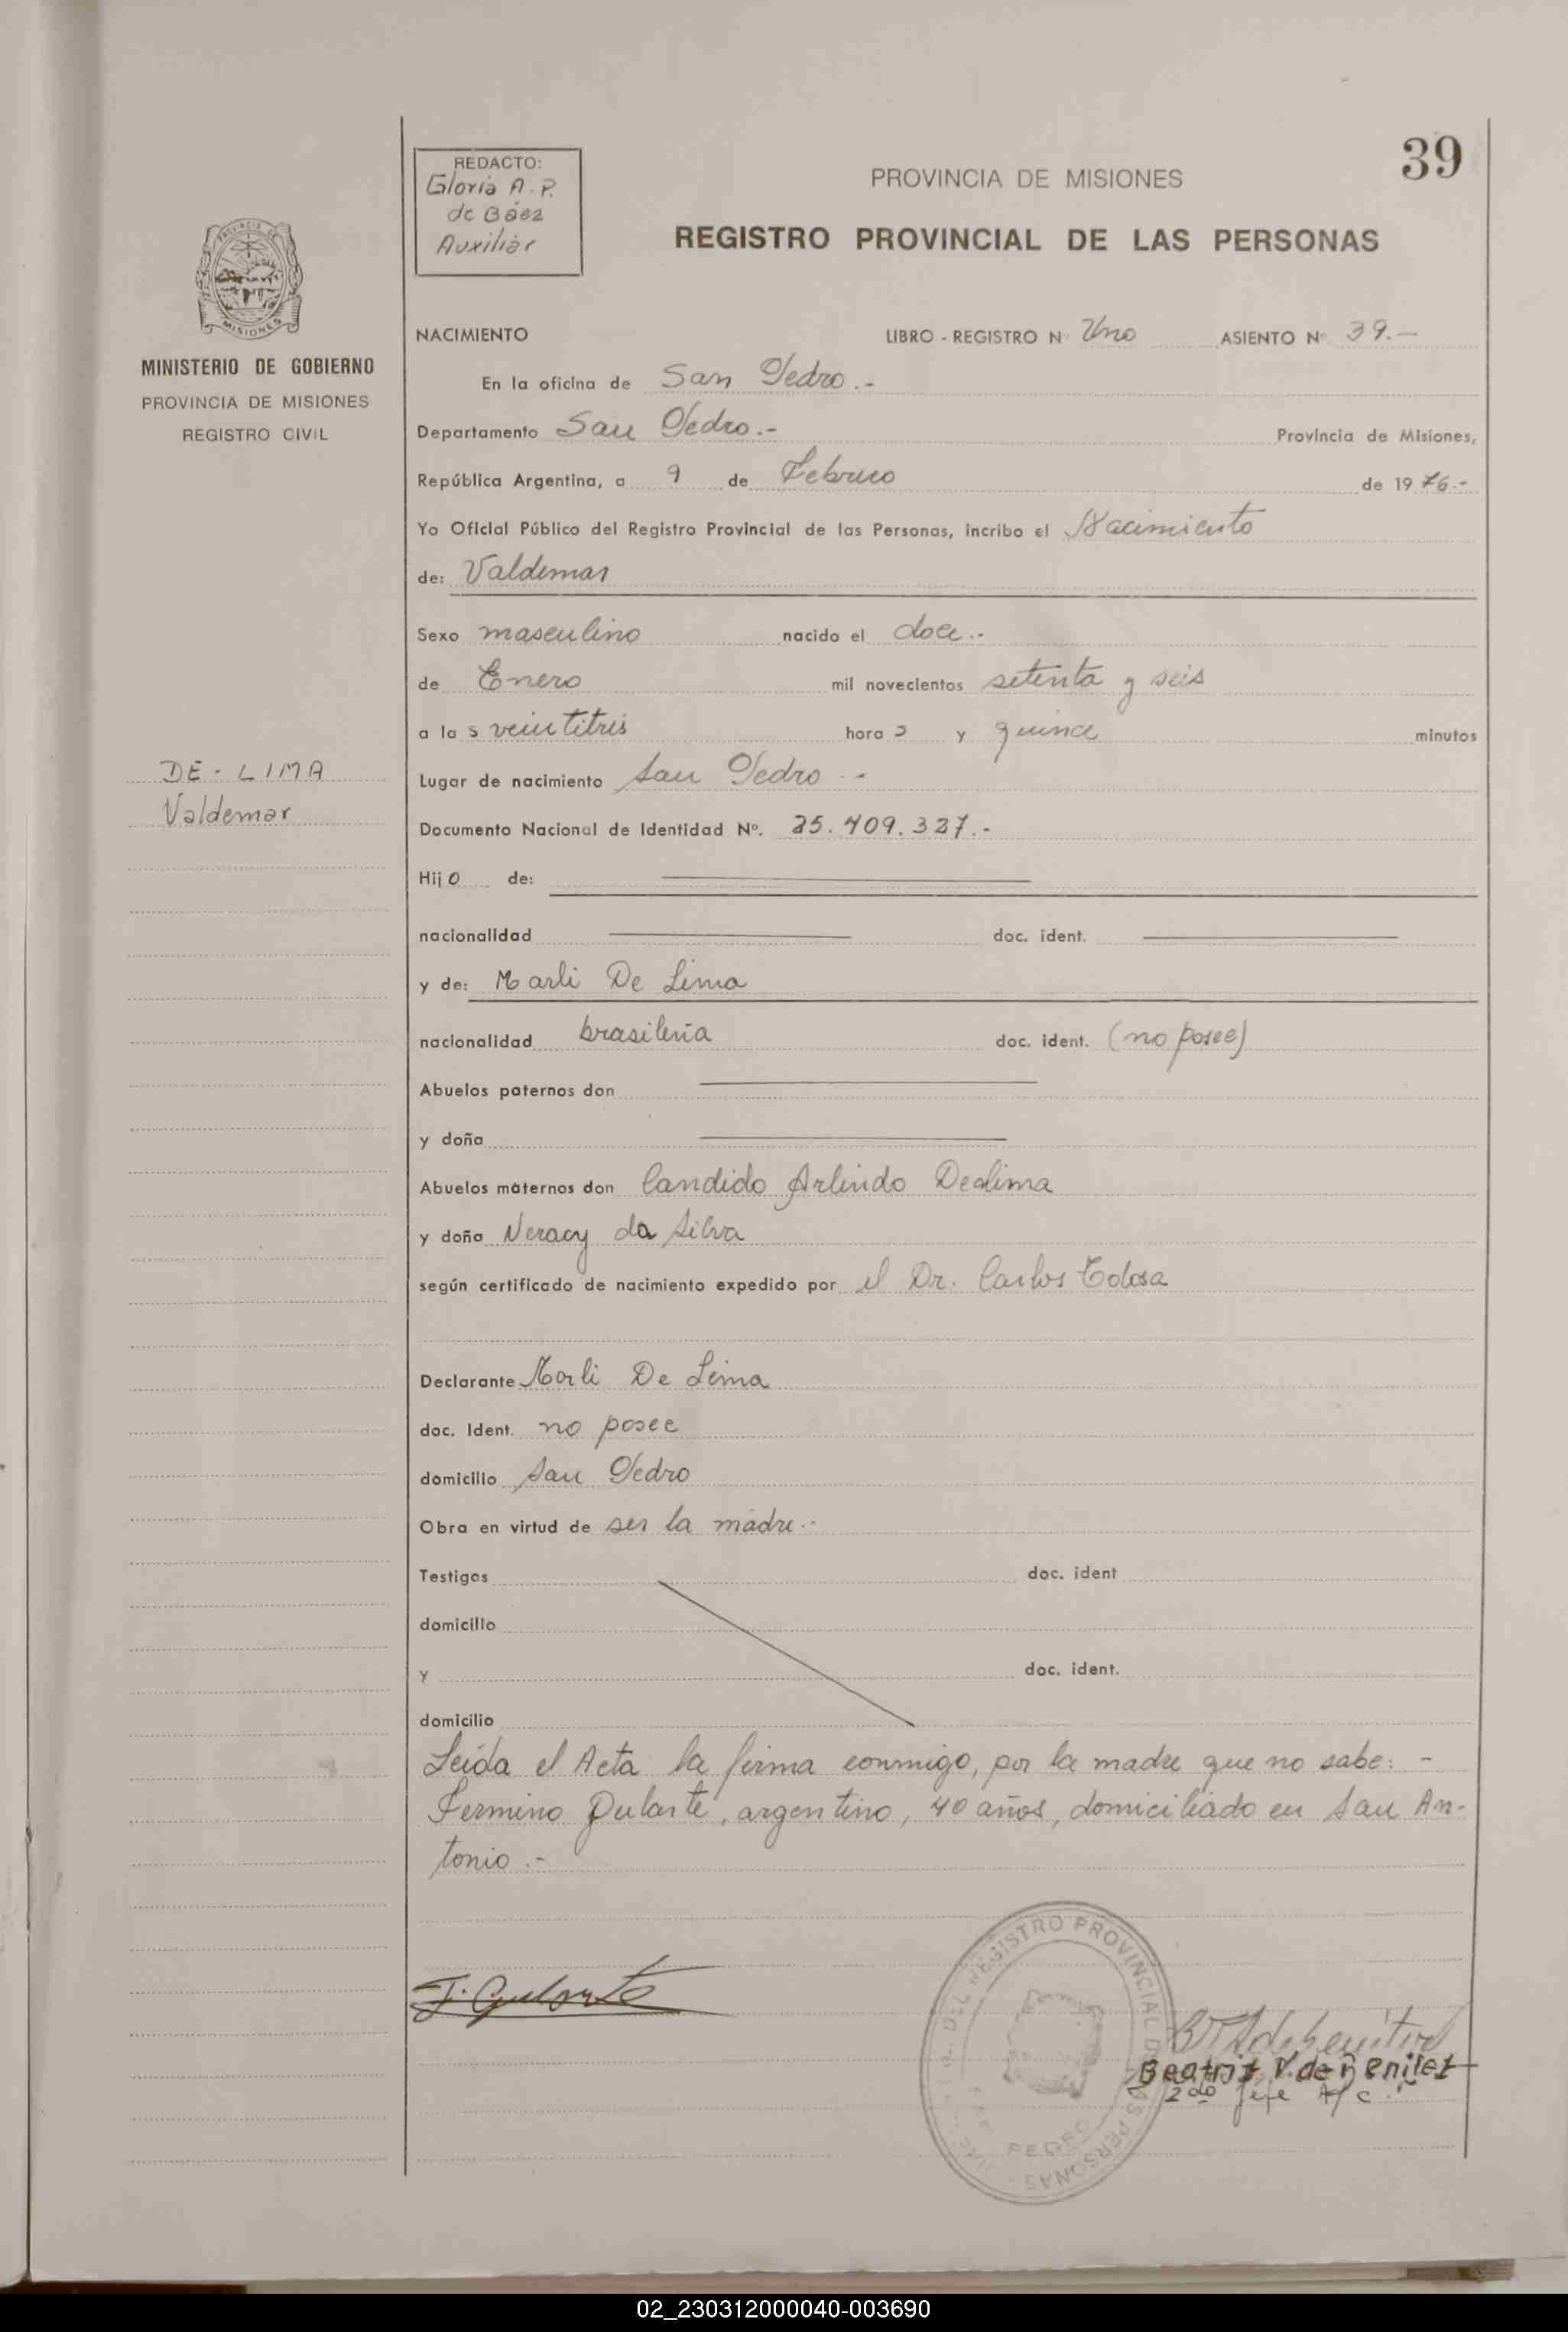 39
REDACTO:
Gloria A. P.
de Báez
Auxiliar
PROVINCIA DE MISIONES
REGISTRO PROVINCIAL DE LAS PERSONAS
MISIONES
MINISTERIO DE GOBIERNO
PROVINCIA DE MISIONES
REGISTRO CIVIL
NACIMIENTO LIBRO - REGISTRO Nº Uno ASIENTO Nº 39.-
En la oficina de San Pedro.-
Departamento San Pedro.- Provincia de Misiones,
República Argentina, a 9 de Febrero de 1976.-
Yo Oficial Público del Registro Provincial de las Personas, incribo el Nacimiento
de: Valdemar
Sexo masculino nacido el doce.-
de Enero mil novecientos setenta y seis
a las veintitrés horas y quince minutos
DE - LIMA
Valdemar
Lugar de nacimiento San Pedro.-
Documento Nacional de Identidad Nº. 25.409.327.-
Hijo de:
nacionalidad doc. ident.
y de: Marli De Lima
nacionalidad brasileña doc. ident. (no posee)
Abuelos paternos don
y doña
Abuelos maternos don Candido Arlindo Dealima
y doña Neracy da Silva
según certificado de nacimiento expedido por el Dr. Carlos Tolosa
Declarante Marli De Lima
doc. Ident. no posee
domicilio San Pedro
Obra en virtud de ser la madre.-
Testigos doc. ident
domicilio
y doc. ident.
domicilio
Leída el Acta la firma conmigo, por la madre que no sabe: -
Fermino Gularte, argentino, 40 años, domiciliado en San An-
tonio.-
F. Gularte
DEL REGISTRO PROVINCIAL DE LAS PERSONAS
PEDRO
Beatriz V. de Benitez
2do Jefe A/C
02_230312000040-003690